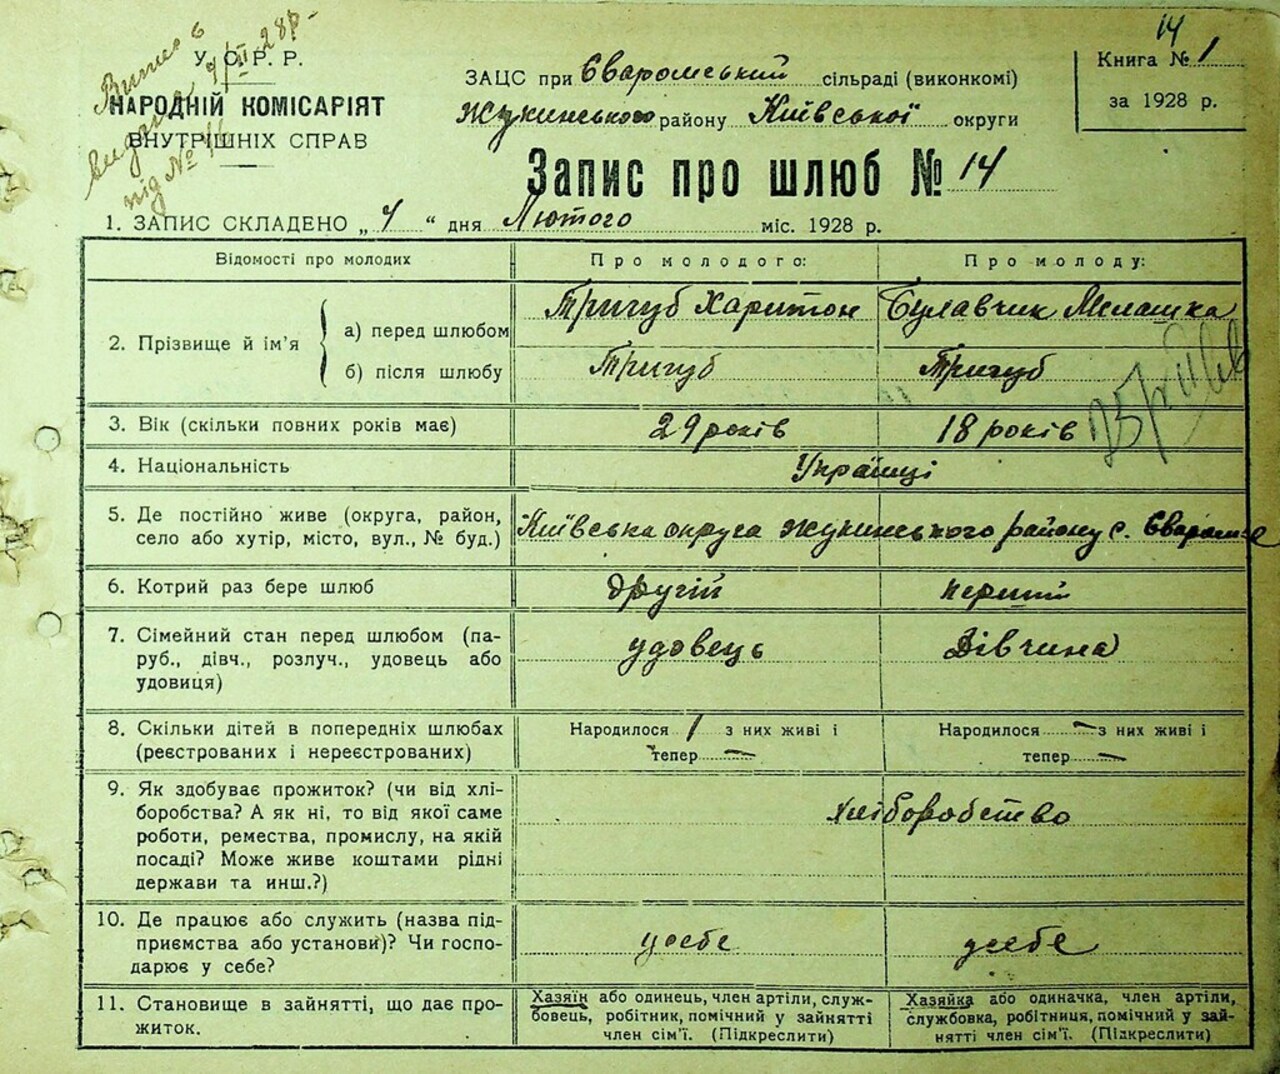 Випис
видано 4/II 28р.
під № 16
У. С. Р. Р.
НАРОДНІЙ КОМІСАРІЯТ
ВНУТРІШНІХ СПРАВ
14
Книга № 1
за 1928 р.
ЗАЦС при Єваромський сільраді (виконкомі)
Жукинського району Київської округи
Запис про шлюб № 14
1. ЗАПИС СКЛАДЕНО „ 4 “ дня Лютого міс. 1928 р.
Відомості про молодих
Про молодого:
Про молоду:
2. Прізвище й ім’я
а) перед шлюбом
Тригуб Харитон
Булавчик Мелашка
б) після шлюбу
Тригуб
Тригуб
3. Вік (скільки повних років має)
29 років
18 років
4. Національність
Українці
5. Де постійно живе (округа, район,
село або хутір, місто, вул., № буд.)
Київська округа Жукинського району с.
6. Котрий раз бере шлюб
другій
перший
7. Сімейний стан перед шлюбом (па-
руб., дівч., розлуч., удовець або
удовиця)
удовець
Дівчина
8. Скільки дітей в попередніх шлюбах
(реєстрованих і нереєстрованих)
Народилося 1 з них живі і
тепер —
Народилося — з них живі і
тепер —
9. Як здобуває прожиток? (чи від хлі-
боробства? А як ні, то від якої саме
роботи, ремества, промислу, на якій
посаді? Може живе коштами рідні
держави та инш.?)
хліборобство
10. Де працює або служить (назва під-
приємства або установи)? Чи госпо-
дарює у себе?
усебе
усебе
11. Становище в зайнятті, що дає про-
житок.
Хазяїн або одинець, член артіли, служ-
бовець, робітник, помічний у зайнятті
член сім’ї. (Підкреслити)
Хазяйка або одиначка, член артіли,
службовка, робітниця, помічний у зай-
нятті член сім’ї. (Підкреслити)